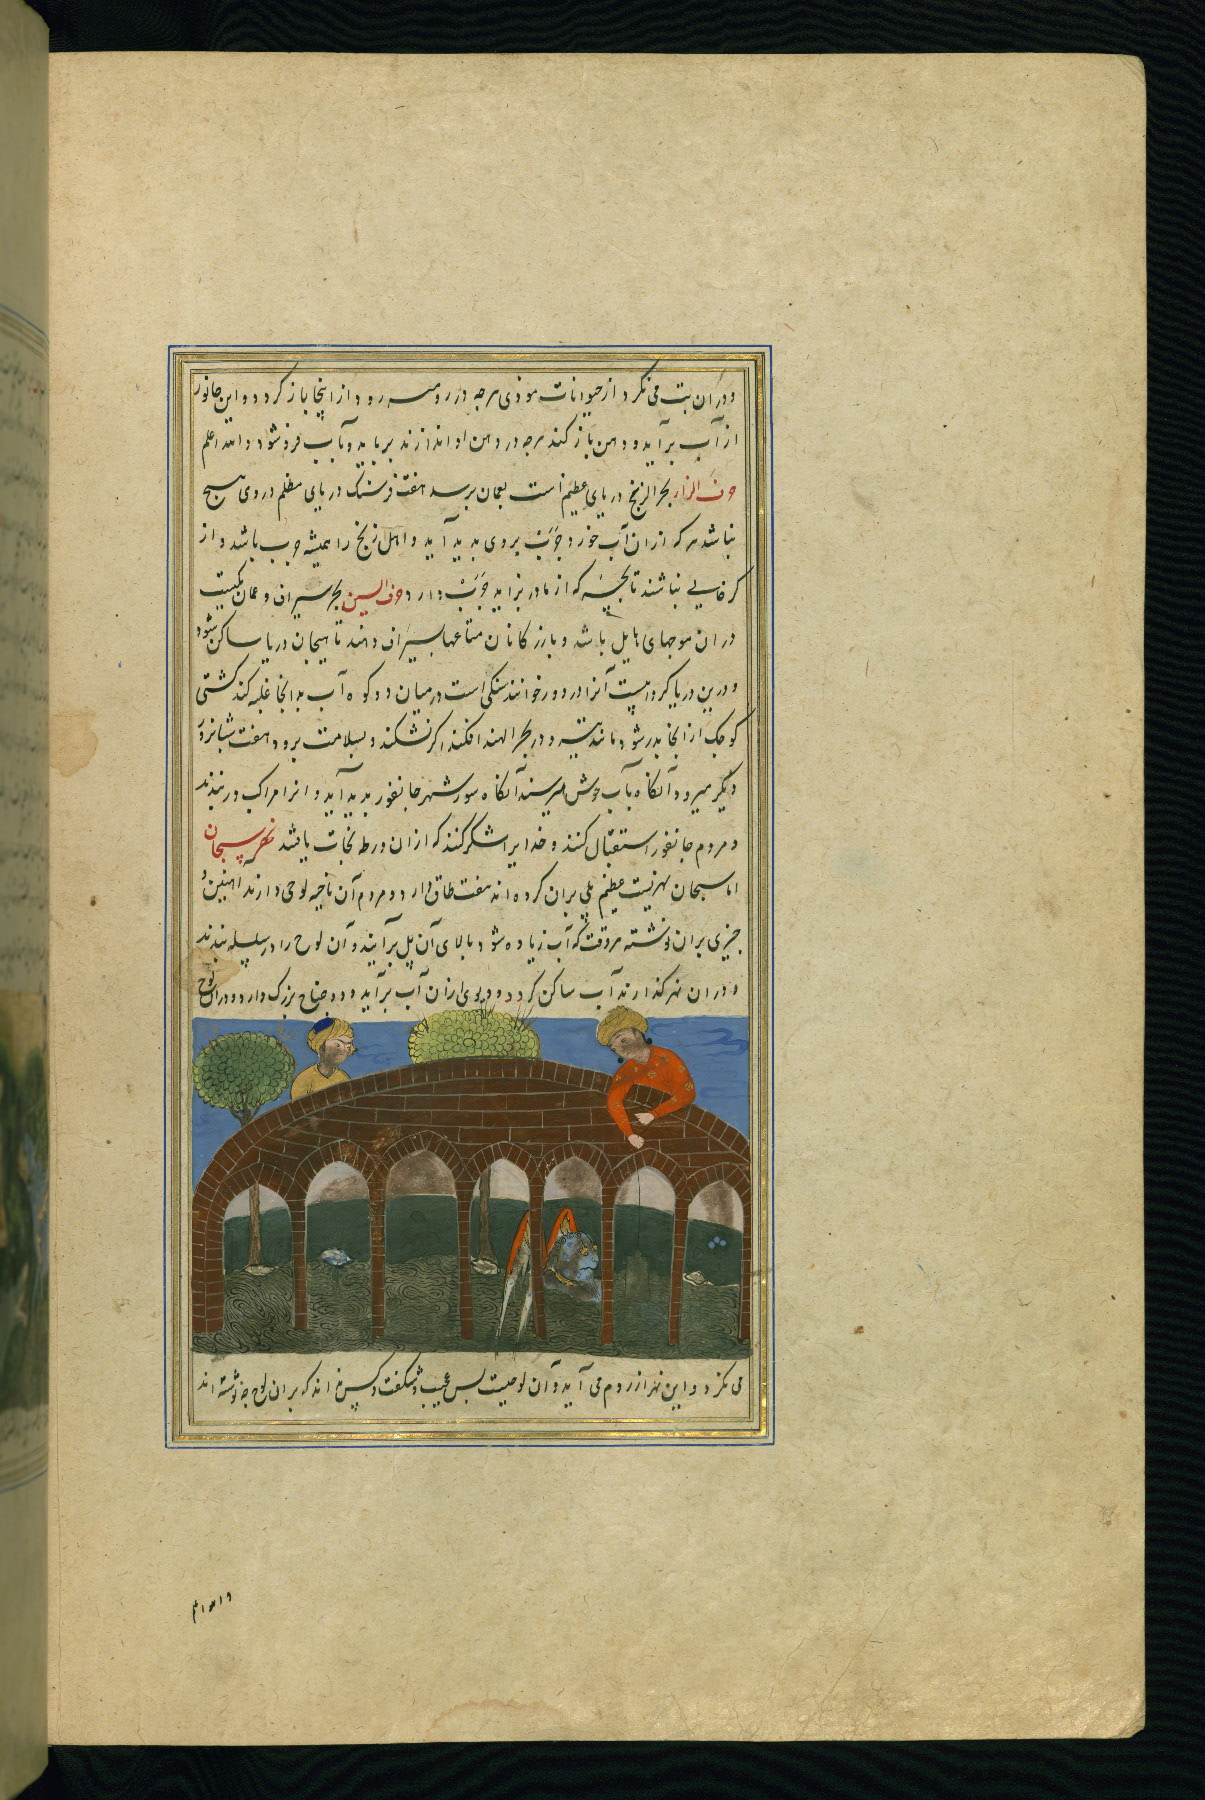 و در آن بت می نکرد از حیوانات موذی هرچه در رومیه رود از اینجا باز کردد و این جانور
از آب برآید و دهن باز کند هرچه در دهن او اندازند برباید و بآب فرو شود و الله اعلم
حرف الزا بحر الزنج دریای عظیم است بعمان برسد هفت فرسنک دریای مظلم در وی هیچ
نباشد هر که از ان آب خورد جرب بروی بدید آید و اهل زنج را همیشه جرب باشد و از
نباشند تا بچه که از مادر بزاید جرب دارد حرف السین بحر سیراف و عمان یکیست
در ان موجهای هایل باشد و بازرکانان متاعها بسیراف دهند تا هیجان دریا ساکن شود
و درین دریا کردابیست آنرا دردور خوانند سنکی است در میان دو کوه آب بدانجا غلبه کند کشتی
کوچک از انجا بدر شود و در بحر الهند افکند اکر نشکند و بسلامت برود هفت شبانروز
دیکر میرود آنکاه بآب خوش میرسند آنکاه سور شهر جانفور بدید آید و انرا مراکب در بندند
و مردم جانفور استقبال کنند و خدایرا شکر کنند که از ان ورطه نجات یافتند نهر سبحان
اما سبحان نهریست عظیم پلی بران کرده اند هفت طاق دارد و مردم آن ناحیه لوحی دارند آهنین و
چیزی بران نوشته هر وقت که آب زیاده شود بالای آن پل برآیند و آن لوح را در سلسله بندند
و در ان نهر کذارند آب ساکن کردد و دیوی از ان آب برآید و دو جناح بزرک دارد و در ان لوح
می نکرد و این نهر از روم می آید و آن لوحیست بس عجیب و شکفت و کس نداند که بران لوح چه نوشته اند